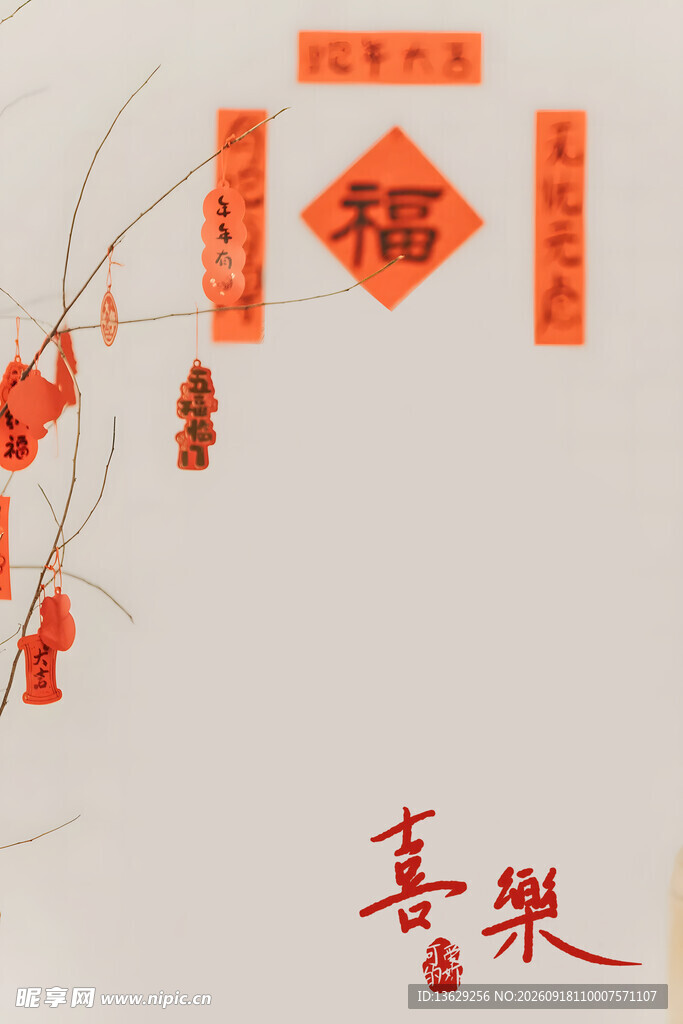 蛇年大吉
福
无忧无虑
年年有
五福临门
福
大吉
喜樂
可爱的你
昵享网 www.nipic.cn
ID:13629256 NO:20260918110007571107